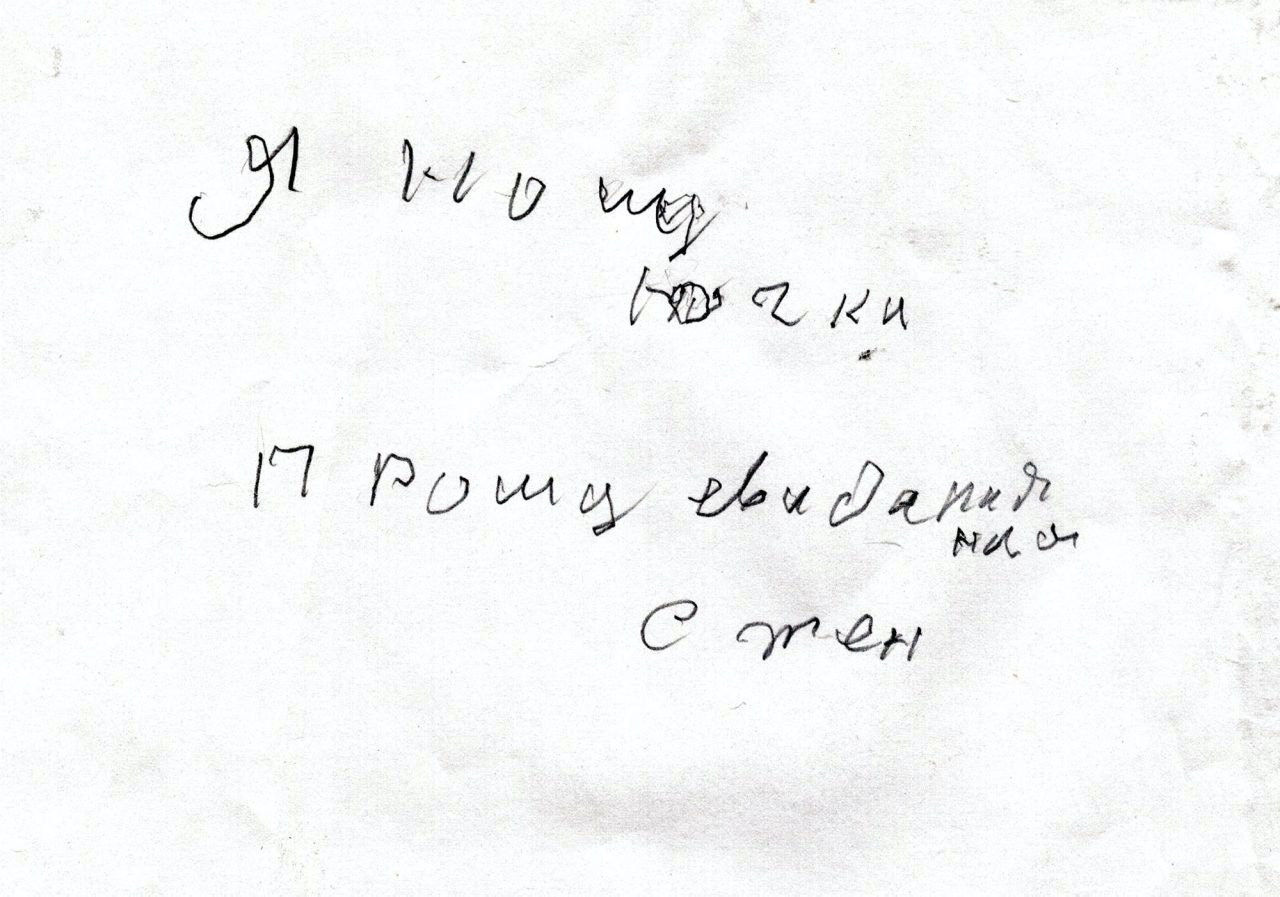 Я ношу
ючки
Прошу свидания
ная
с жен